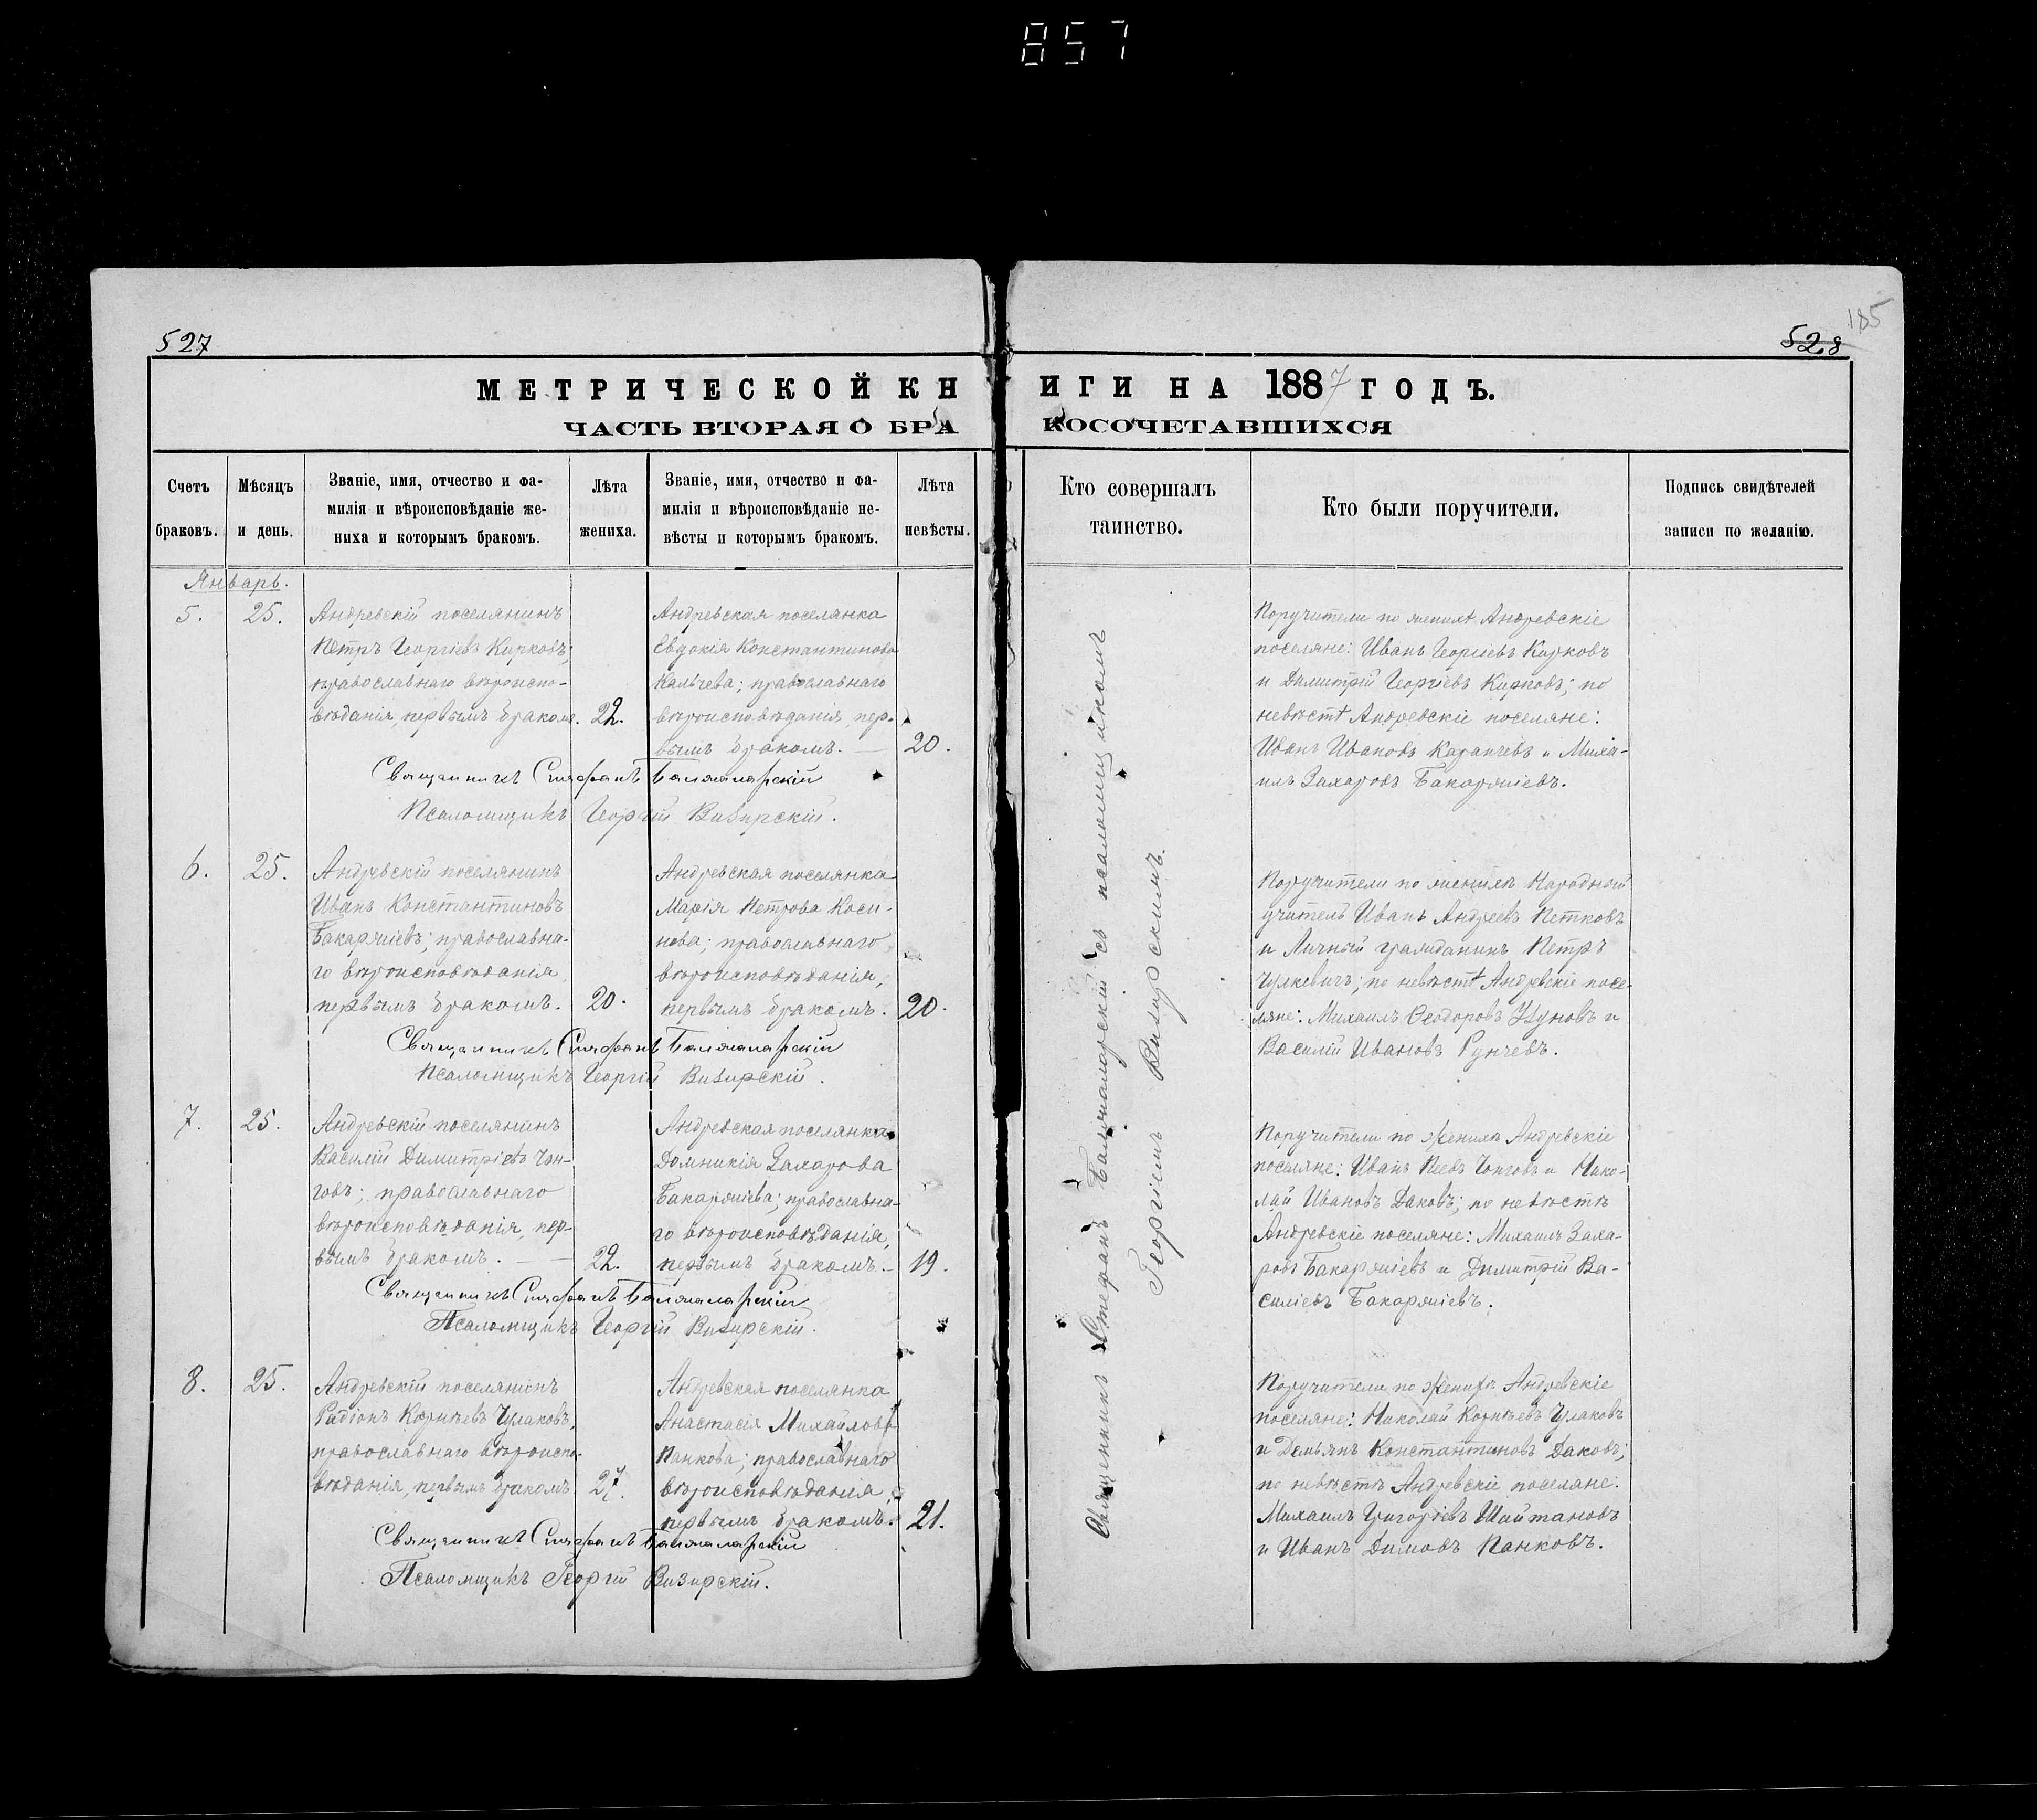 857
527
528
185
МЕТРИЧЕСКОЙ КНИГИ НА 1887 ГОДЪ.
ЧАСТЬ ВТОРАЯ О БРАКОСОЧЕТАВШИХСЯ
Счетъ браковъ.
Мѣсяцъ и день.
Званіе, имя, отчество и фа-
милія и вѣроисповѣданіе же-
ниха и которымъ бракомъ.
Лѣта жениха.
Званіе, имя, отчество и фа-
милія и вѣроисповѣданіе не-
вѣсты и которымъ бракомъ.
Лѣта невѣсты.
Кто совершалъ
таинство.
Кто были поручители.
Подпись свидѣтелей
записи по желанію.
Январь.
5.
25.
Андревскій поселянинъ
Петръ Георгіевъ Кирковъ;
православнаго вѣроиспо-
вѣданія, первымъ бракомъ.
22.
Андревская поселянка
Евдокія Константинова
Калчева; православнаго
вѣроисповѣданія, пер-
вымъ бракомъ. —
20.
Поручители по женихѣ Андревскіе
поселяне: Иванъ Георгіевъ Кирковъ
и Димитрій Георгіевъ Кирковъ; по
невѣстѣ Андревскіе поселяне:
Иванъ Ивановъ Карапчевъ и Миха-
илъ Захаровъ Бакаржіевъ.
Священникъ Стефанъ
Псаломщикъ Георгій Визирскій.
6.
25.
Андревскій поселянинъ
Иванъ Константиновъ
Бакаржіевъ; православна-
го вѣроисповѣданія,
первымъ бракомъ.
20.
Андревская поселянка
Марія Петрова Коси-
нова; православнаго
вѣроисповѣданія,
первымъ бракомъ.
20.
Поручители по женихѣ Народный
учитель Иванъ Андреевъ Петковъ
и Личный гражданинъ Петръ
по невѣстѣ Андревскіе посе-
ляне: Михаилъ Ѳеодоровъ Узуновъ и
Василій Ивановъ Рунчевъ.
Священникъ Стефанъ
Псаломщикъ Георгій Визирскій.
7.
25.
Андревскій поселянинъ
Василій Димитріевъ Чон-
говъ; православнаго
вѣроисповѣданія, пер-
вымъ бракомъ. —
22.
Андревская поселянка
Домникія Захарова
Бакаржіева; православна-
го вѣроисповѣданія,
первымъ бракомъ. —
19.
Поручители по женихѣ Андревскіе
поселяне: Иванъ Пеевъ Чонговъ и Нико-
лай Ивановъ Даковъ; по невѣстѣ
Андревскіе поселяне: Михаилъ Заха-
ровъ Бакаржіевъ и Димитрій Ва-
силіевъ Бакаржіевъ.
Священникъ Стефанъ
Псаломщикъ Георгій Визирскій.
8.
25.
Андревскій поселянинъ
Радіонъ Корнѣевъ Чулаковъ,
православнаго вѣроиспо-
вѣданія, первымъ бракомъ.
27.
Андревская поселянка
Анастасія Михайлова
Панкова; православнаго
вѣроисповѣданія,
первымъ бракомъ.
21.
Поручители по женихѣ Андревскіе
поселяне: Николай Корнѣевъ Чулаковъ
и Демьянъ Константиновъ Даковъ;
по невѣстѣ Андревскіе поселяне:
Михаилъ Григоріевъ Шайтановъ
и Иванъ Димовъ Панковъ.
Священникъ Стефанъ
Псаломщикъ Георгій Визирскій.
Священникъ Стефанъ съ псаломщикомъ
Георгіемъ Визирскимъ.